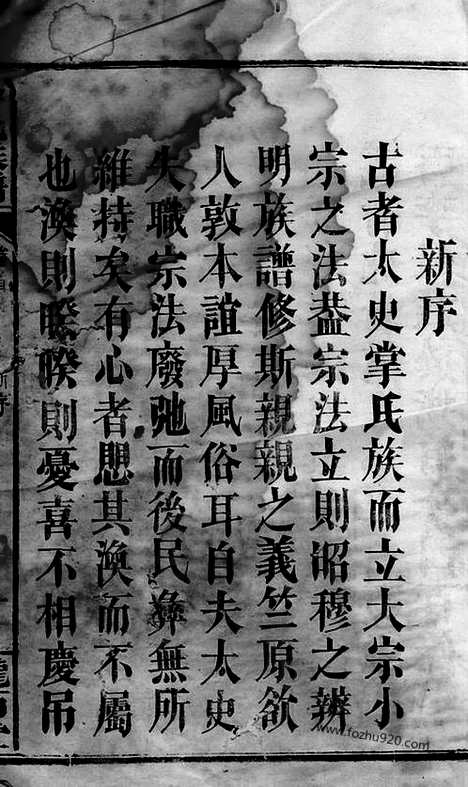 新序
古者太史掌氏族而立大宗小
宗之法葢宗法立則昭穆之辨
明族譜修斯親親之義竺原欲
人敦本誼厚風俗耳自夫太史
失職宗法廢弛而後民彝無所
維持矣有心者愳其渙而不屬
也渙則暌暌則憂喜不相慶吊
www.fozhu920.com